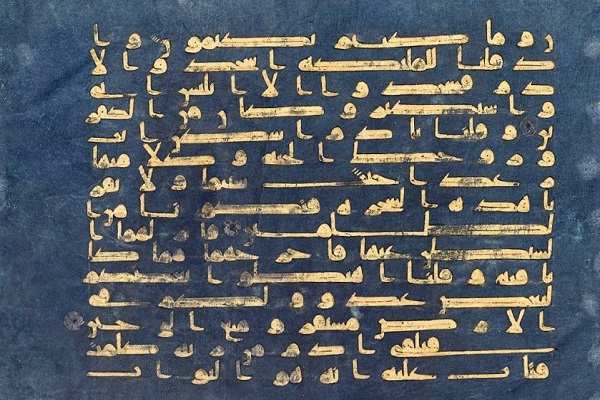 ن وما كنتم تكتمون وا
ذ قلنا للملئكه اسجدوا لا
دم فسجدوا الا ابليس ابى
واستكبر وكان من الكفر
ين وقلنا يادم اسكن انت
وزوجك الجنه وكلا منها
رغدا حيث شئتما ولا تقر
با هذه الشجره فتكونا من ا
لظلمين فازلهما ا
لشيطن عنها فاخرجهما مما كا
نا فيه وقلنا اهبطوا بعضكم
لبعض عدو ولكم في
الارض مستقر ومتع الى حين
فتلقى ادم من ربه كلمت
فتاب عليه انه هو التواب